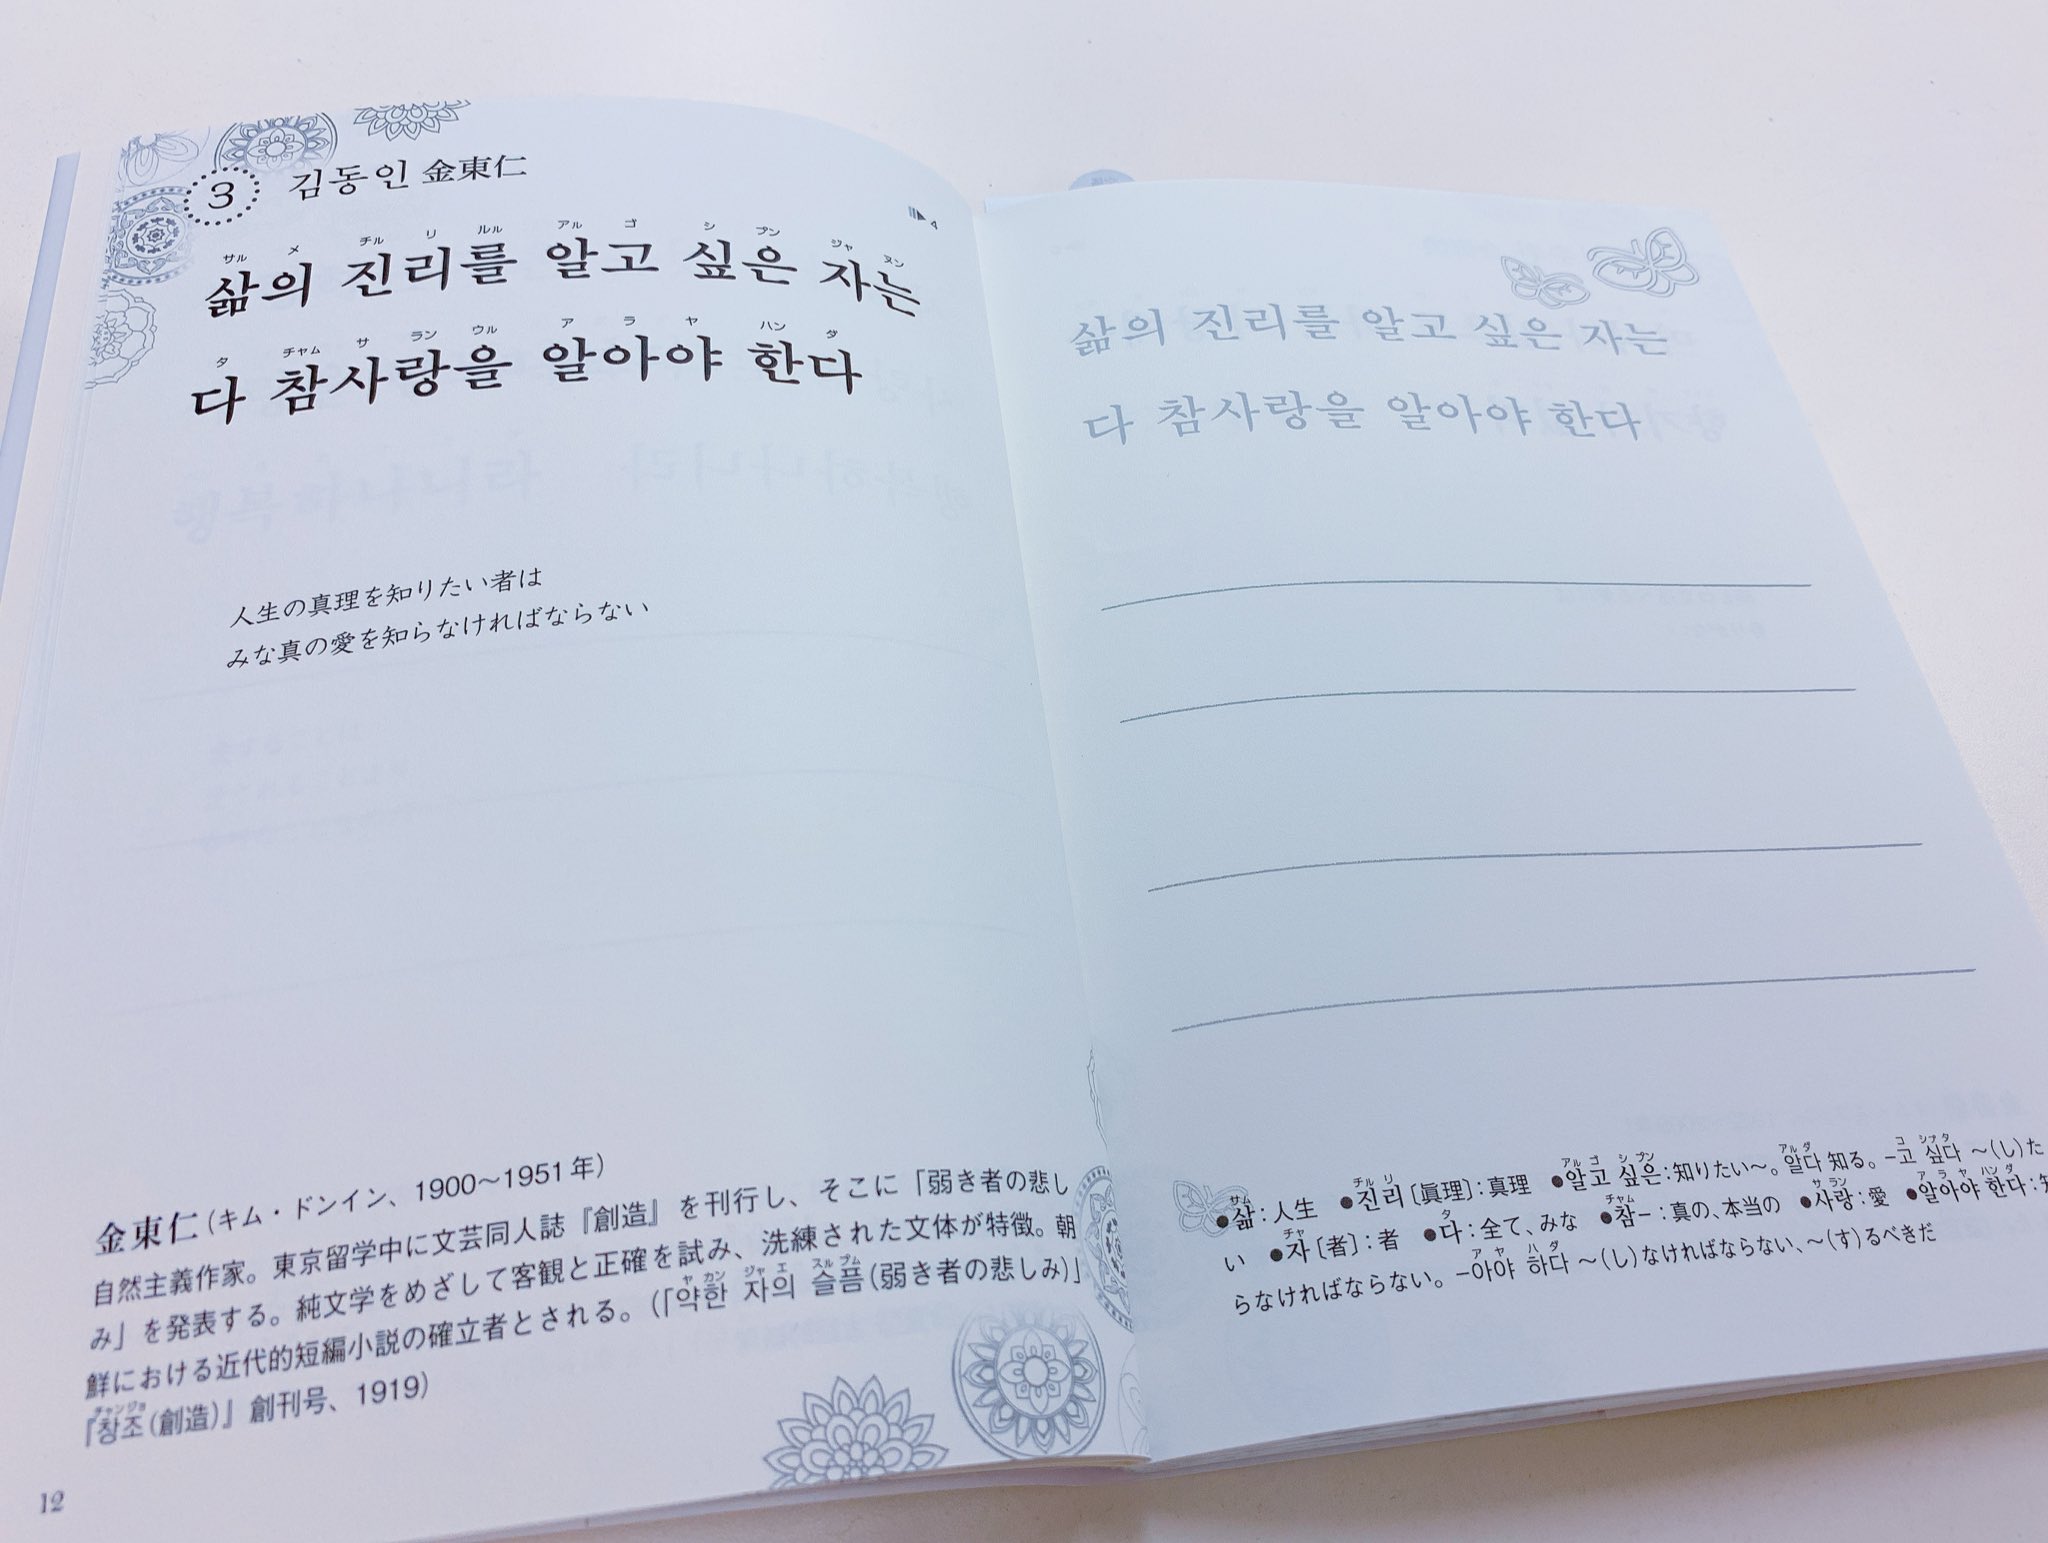 3 김동인 金東仁
4
サル メ チル リ ルル アル ゴ シ プン ジャ ヌン
삶의 진리를 알고 싶은 자는
タ チャム サ ラン ウル ア ラ ヤ ハン ダ
다 참사랑을 알아야 한다
人生の真理を知りたい者は
みな真の愛を知らなければならない
金東仁(キム・ドンイン、1900〜1951年)
自然主義作家。東京留学中に文芸同人誌『創造』を刊行し、そこに「弱き者の悲し
み」を発表する。純文学をめざして客観と正確を試み、洗練された文体が特徴。朝
鮮における近代的短編小説の確立者とされる。(「약한 자의 슬픔(弱き者の悲しみ)」
ヤ カン ジャ エ スル プム
『창조(創造)』創刊号、1919)
チャンジョ
12
삶의 진리를 알고 싶은 자는
다 참사랑을 알아야 한다
サム チル リ アル ゴ シ プン アル ダ コ シナ タ
●삶:人生 ●진리[眞理]:真理 ●알고 싶은:知りたい〜。알다 知る。-고 싶다 〜(し)た
チャ タ チャム サ ラン ア ラ ヤ ハン ダ
い ●자[者]:者 ●다:全て、みな ●참-:真の、本当の ●사랑:愛 ●알아야 한다:知
ア ヤ ハ ダ
らなければならない。-아야 하다 〜(し)なければならない、〜(す)るべきだ